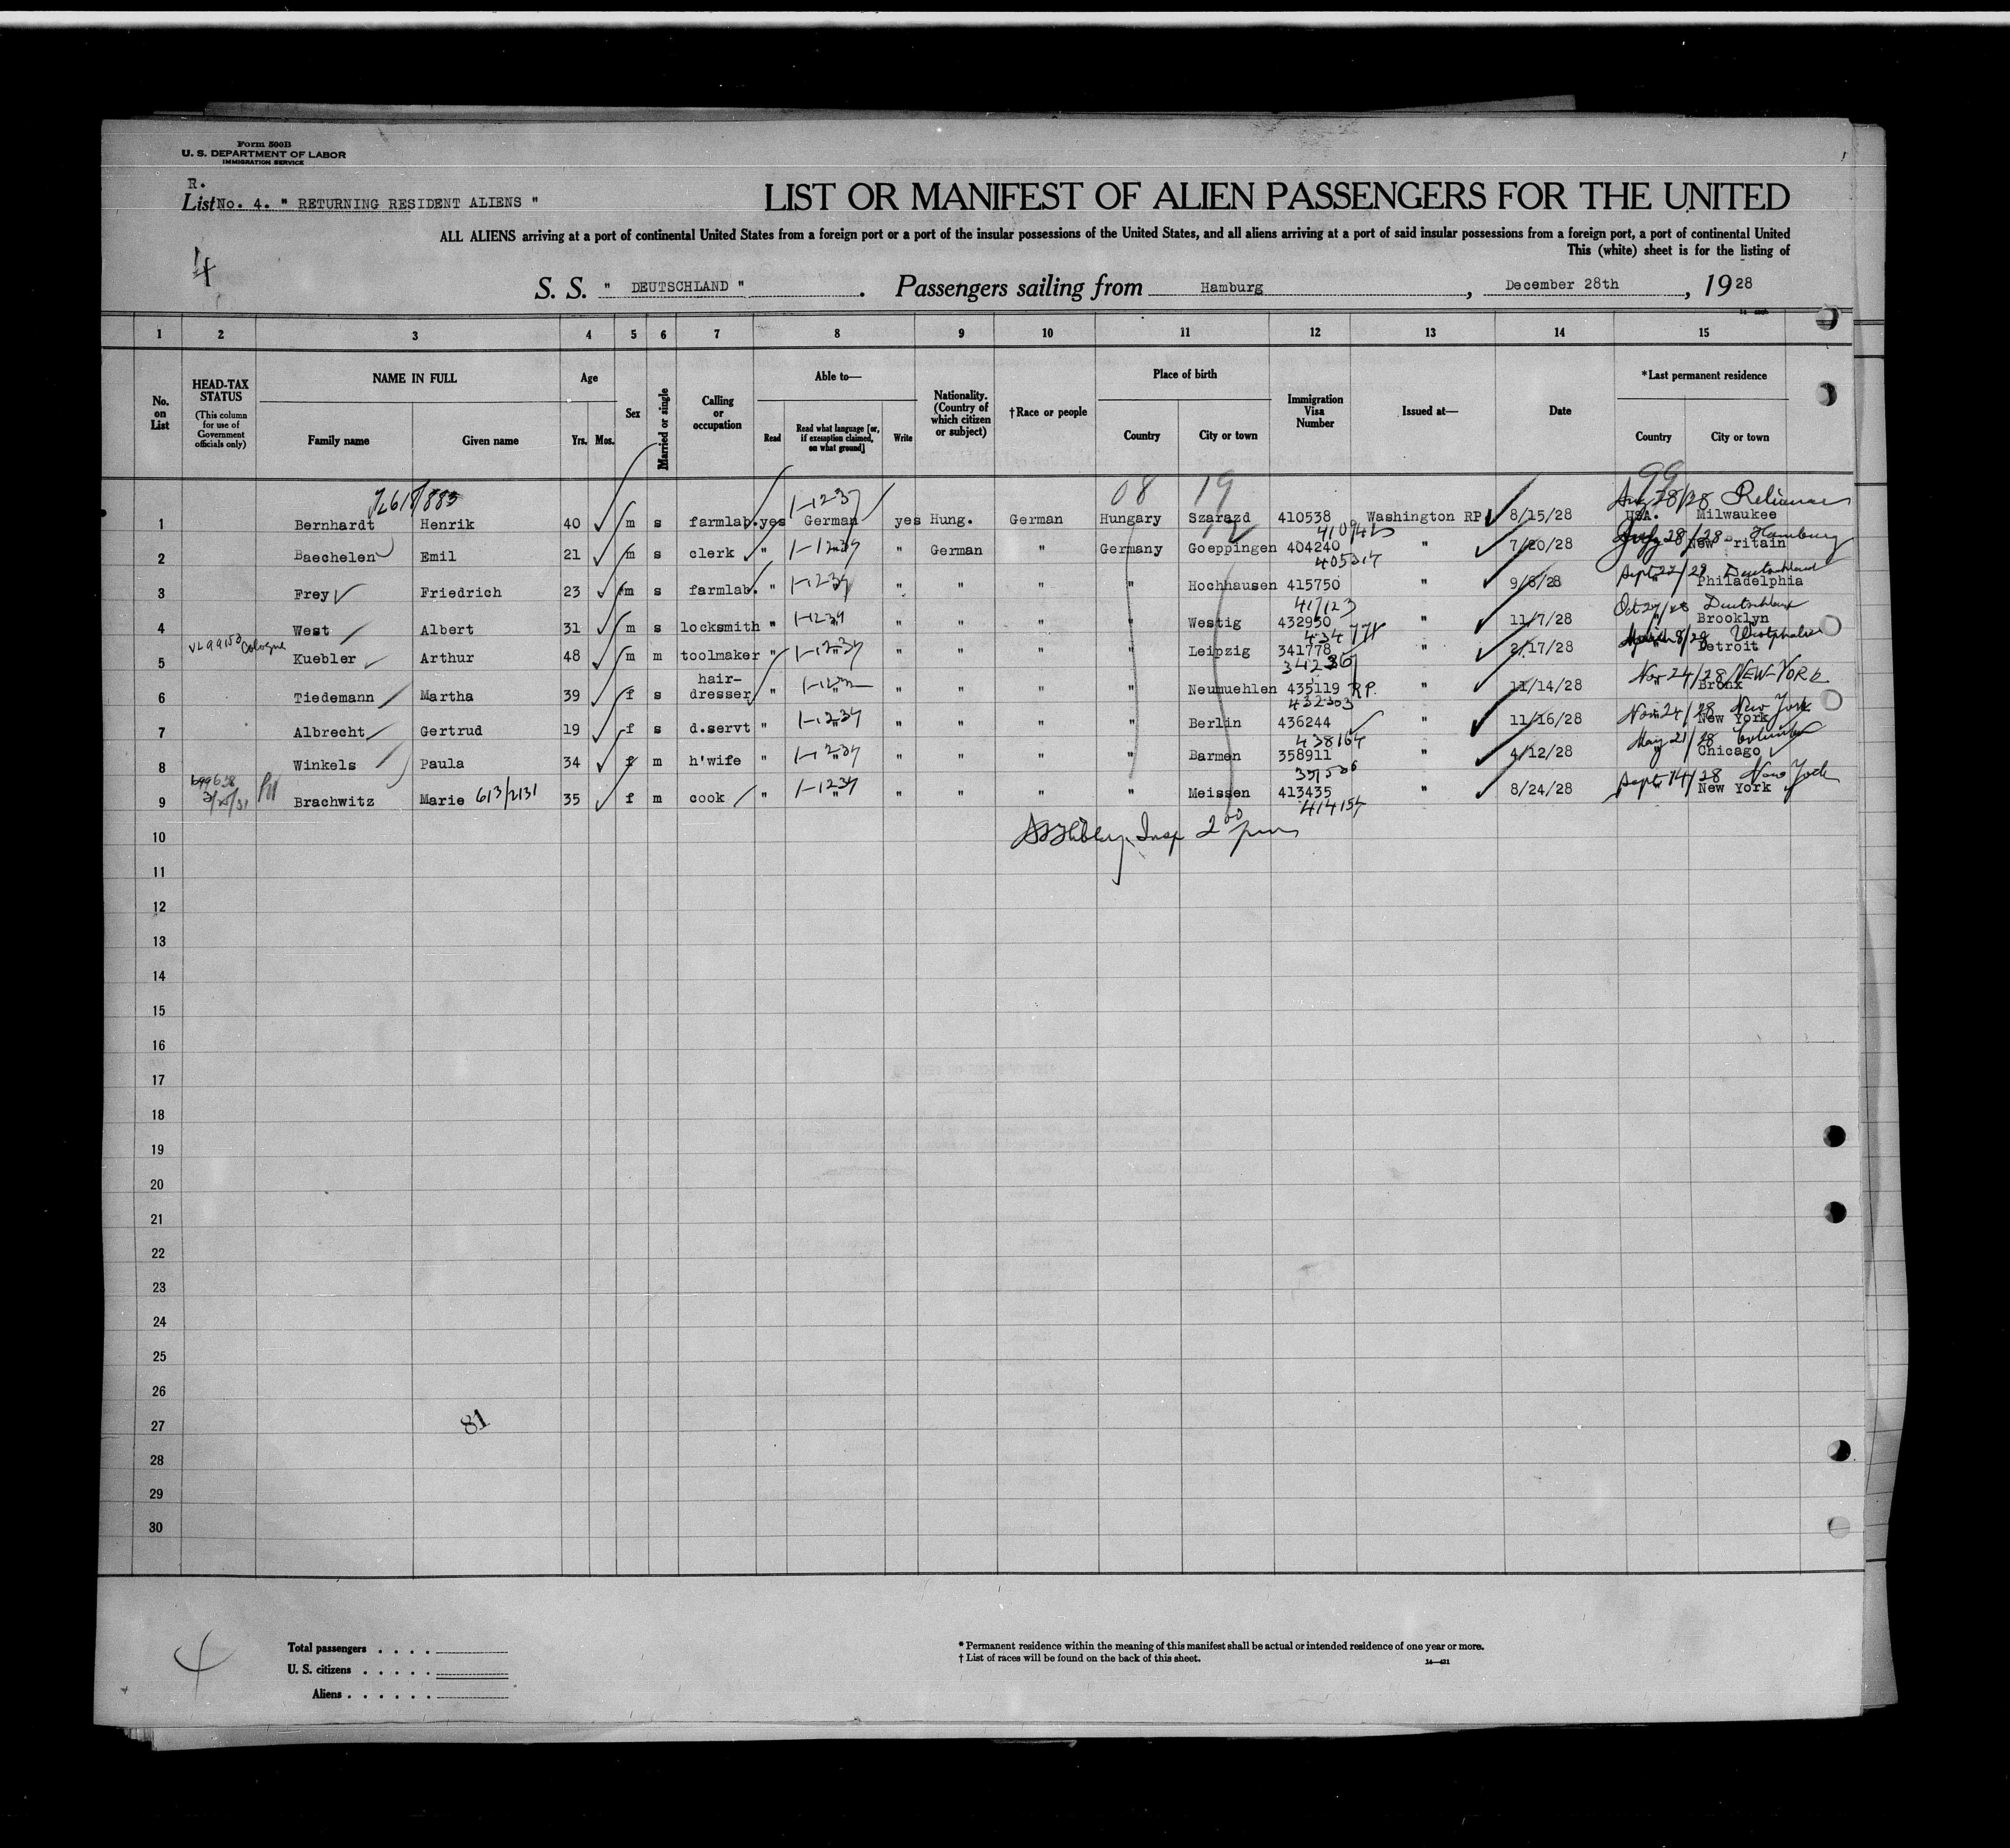 Form 500B
U. S. DEPARTMENT OF LABOR
IMMIGRATION SERVICE
R.
List No. 4. " RETURNING RESIDENT ALIENS "
LIST OR MANIFEST OF ALIEN PASSENGERS FOR THE UNITED
ALL ALIENS arriving at a port of continental United States from a foreign port or a port of the insular possessions of the United States, and all aliens arriving at a port of said insular possessions from a foreign port, a port of continental United
This (white) sheet is for the listing of
4
S. S. " DEUTSCHLAND " . Passengers sailing from Hamburg , December 28th , 19 28
1 2 3 4 5 6 7 8 9 10 11 12 13 14 15
No. on List
HEAD-TAX STATUS (This column for use of Government officials only)
NAME IN FULL Family name Given name
Age Yrs. Mos.
Sex
Married or single
Calling or occupation
Able to— Read Read what language [or, if exemption claimed, on what ground] Write
Nationality. (Country of which citizen or subject)
†Race or people
Place of birth Country City or town
Immigration Visa Number
Issued at—
Date
*Last permanent residence Country City or town
08 19 99
1-1237 Aug 28/28 Reliance
1 Bernhardt Henrik 40 m s farmlab. yes German yes Hung. German Hungary Szarazd 410538 Washington RP 8/15/28 USA. Milwaukee
July 28/28 Hamburg
2 Baechelen Emil 21 m s clerk " " " German " Germany Goeppingen 404240 " 7/20/28 " New Britain
Sept 22/28 Deutschland
3 Frey Friedrich 23 m s farmlab. " " " " " " Hochhausen 415750 " 9/8/28 " Philadelphia
417123 Oct 27/28 Deutschland
4 West Albert 31 m s locksmith " " " " " " Westig 432950 " 11/7/28 " Brooklyn
Cologne 434771 Westphalia
5 Kuebler Arthur 48 m m toolmaker " " " " " " Leipzig 341778 " 2/17/28 " Detroit
hair- Nov 24/28 NEW-YORK
6 Tiedemann Martha 39 f s dresser " " " " " " Neumuehlen 435119 RP. " 11/14/28 " Bronx
432303 Nov 24/28 New York
7 Albrecht Gertrud 19 f s d.servt " " " " " " Berlin 436244 " 11/16/28 " New York
438164 May 21/28 Columbus
8 Winkels Paula 34 f m h'wife " " " " " " Barmen 358911 " 4/12/28 " Chicago
Sept 14/28 New York
9 Brachwitz Marie 613/2131 35 f m cook " " " " " " Meissen 413435 " 8/24/28 " New York
414154
10 Insp 2 00 pm
11
12
13
14
15
16
17
18
19
20
21
22
23
24
25
26
27
81
28
29
30
Total passengers . . . .
U. S. citizens . . . . .
Aliens . . . . . .
* Permanent residence within the meaning of this manifest shall be actual or intended residence of one year or more.
† List of races will be found on the back of this sheet.
14—421